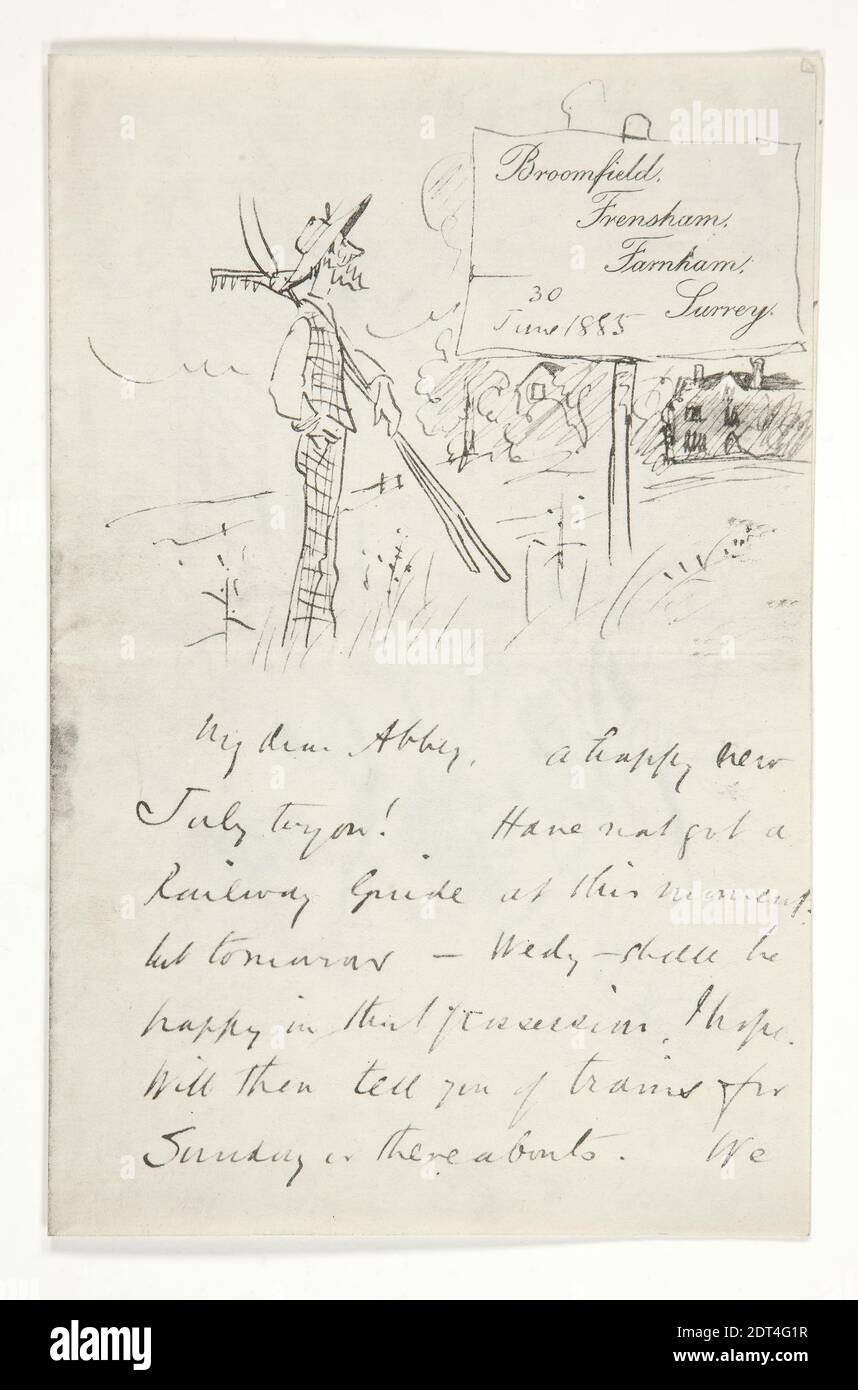 Broomfield,
Frensham,
Farnham,
Surrey.
30
June 1885
My dear Abbey, a happy new
July to you! Have not got a
Railway Guide at this moment
but tomorrow — Wedy — shall be
happy in that possession, I hope.
Will then tell you of trains for
Sunday or thereabouts. We
alamy
Image ID: 2DT4G1R
www.alamy.com